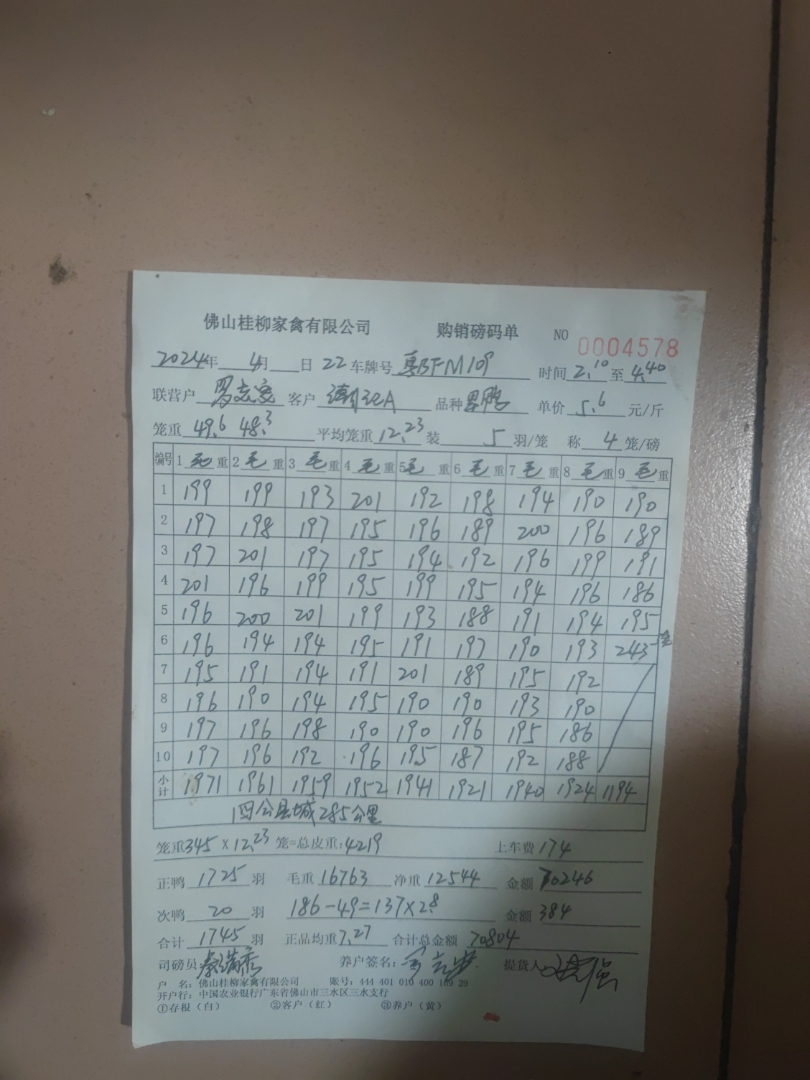 佛山桂柳家禽有限公司 购销磅码单 NO 0004578
2024年 4月 日 22 车牌号 粤BFM109 时间 2.10 至 4.40
联营户 罗志 客户 品种 单价 5.6 元/斤
笼重 49.6 48.3 平均笼重 12.23 装 5 羽/笼 称 4 笼/磅
编号 1 毛 重 2 毛 重 3 毛 重 4 毛 重 5 毛 重 6 毛 重 7 毛 重 8 毛 重 9 毛 重
1 199 199 193 201 192 198 194 190 190
2 197 198 197 195 196 189 200 196 189
3 197 201 197 195 194 192 196 199 191
4 201 196 199 195 199 195 194 196 186
5 196 200 201 199 193 188 191 194 195
6 196 194 194 195 191 197 190 193 243
7 195 191 194 191 201 189 195 192
8 196 190 194 195 190 190 193 190
9 197 196 198 190 190 196 195 186
10 197 196 192 196 195 187 192 188
小计 1971 1961 1959 1952 1941 1921 1940 1924 1194
四公县城285公里
笼重 345 × 12.23 笼=总皮重: 4219 上车费 174
正鸭 1725 羽 毛重 16763 净重 12544 金额 70246
次鸭 20 羽 186-49=137×2.8 金额 384
合计 1745 羽 正品均重 7.27 合计总金额 70804
司磅员 养户签名: 提货人
户 名: 佛山桂柳家禽有限公司 账号: 444 401 010 400 109 29
开户行: 中国农业银行广东省佛山市三水区三水支行
①存根(白) ②客户(红) ③养户(黄)